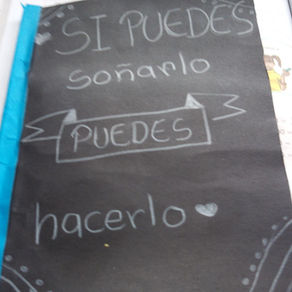 SI PUEDES
soñarlo
PUEDES
hacerlo